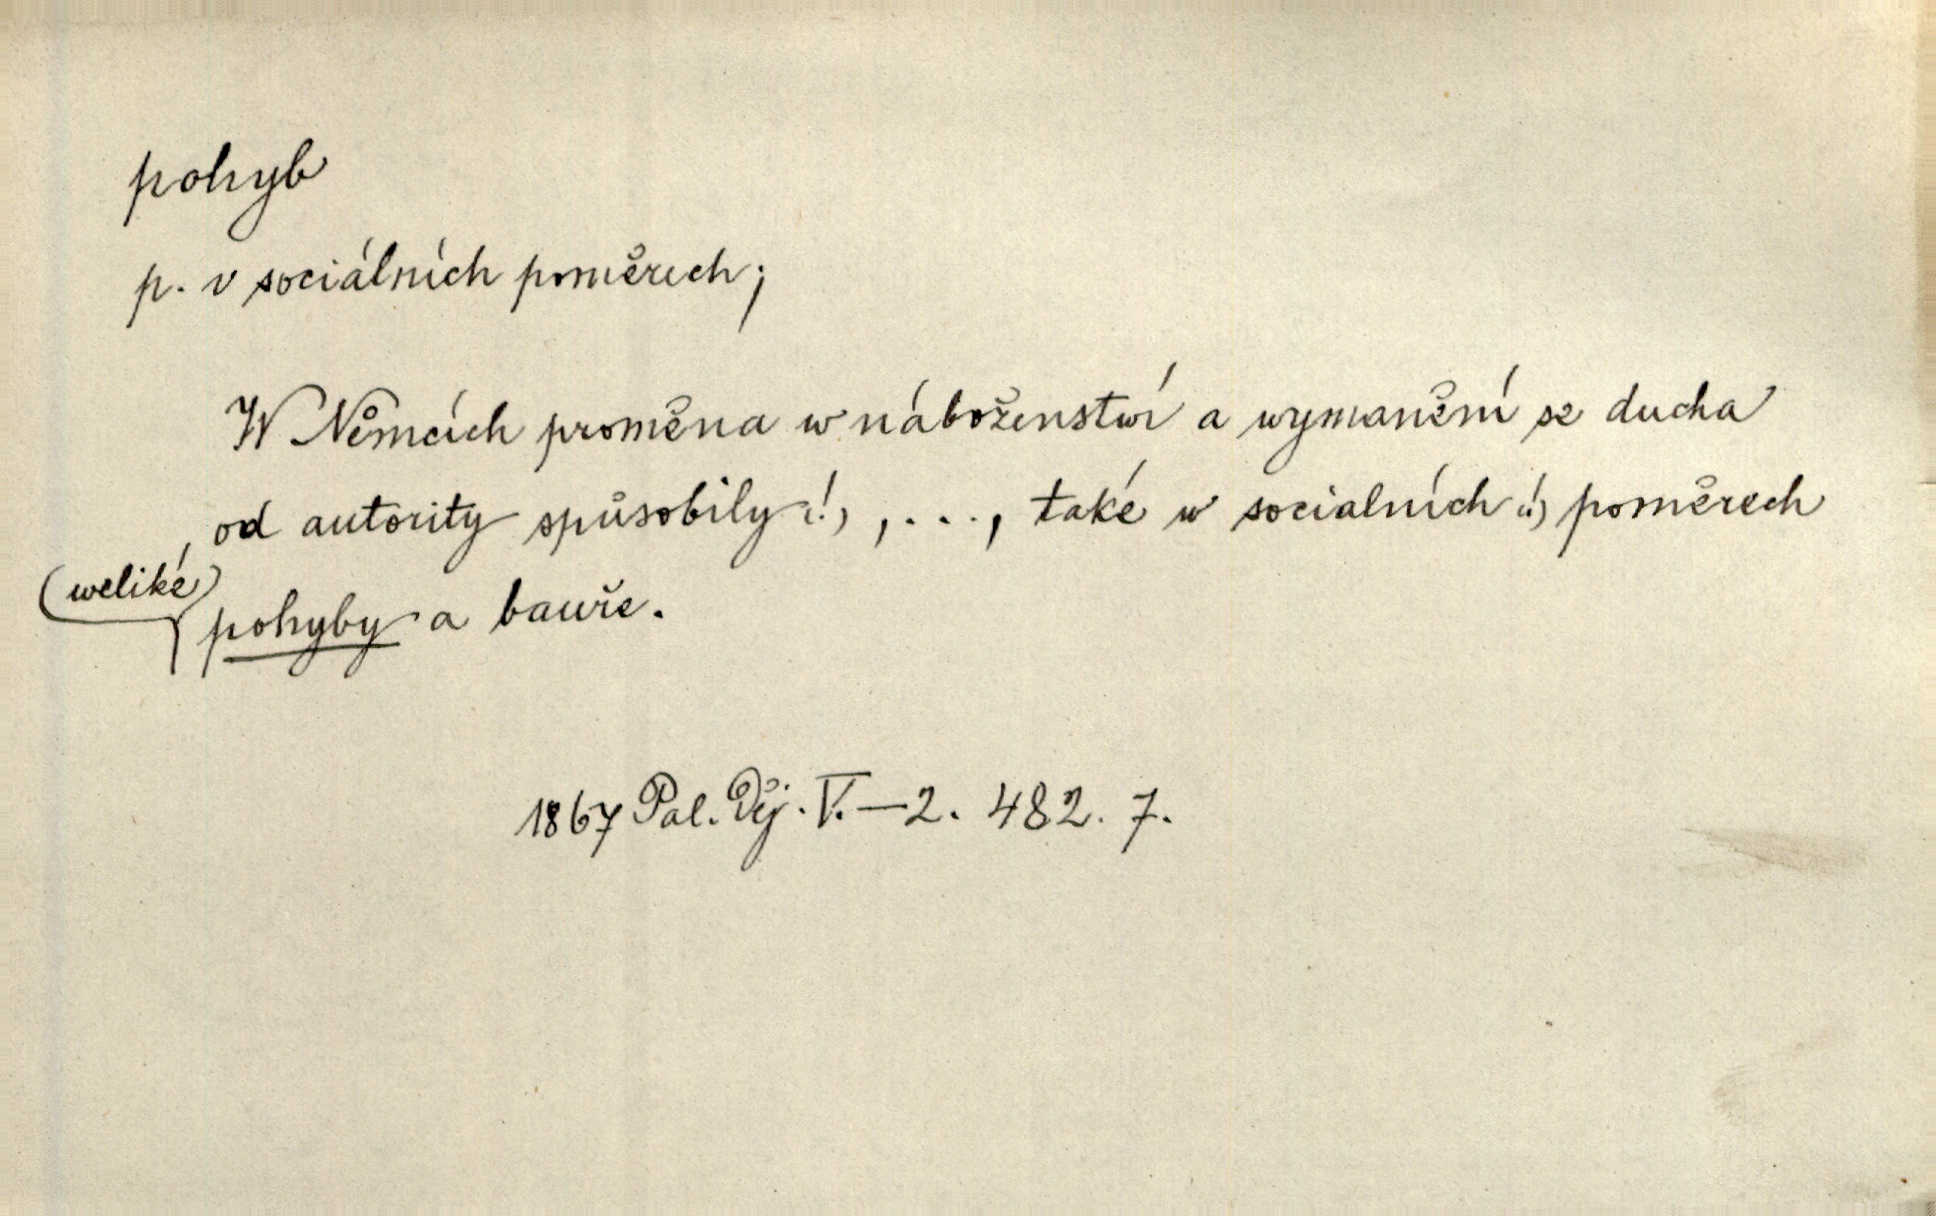 pohyb
p. v sociálních poměrech;
W Němcích proměna w náboženstwí a wymanění se ducha
od autority spůsobily (!), , . . . , také w socialních (!) poměrech
(weliké)
pohyby a bauře.
1867 Pal. Děj. V.—2. 482. 7.